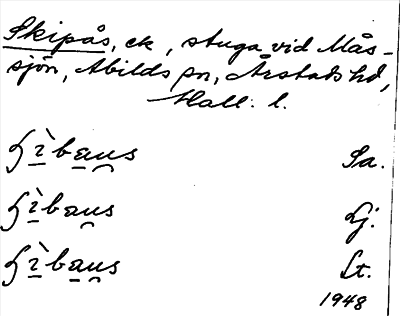 Skipås, ck, stuga vid Mås-
sjön, Abilds sn, Årstads hd,
Hall. l.
ʃìbaus Sa.
ʃìbaus Lj.
ʃìbaus Lt.
1948